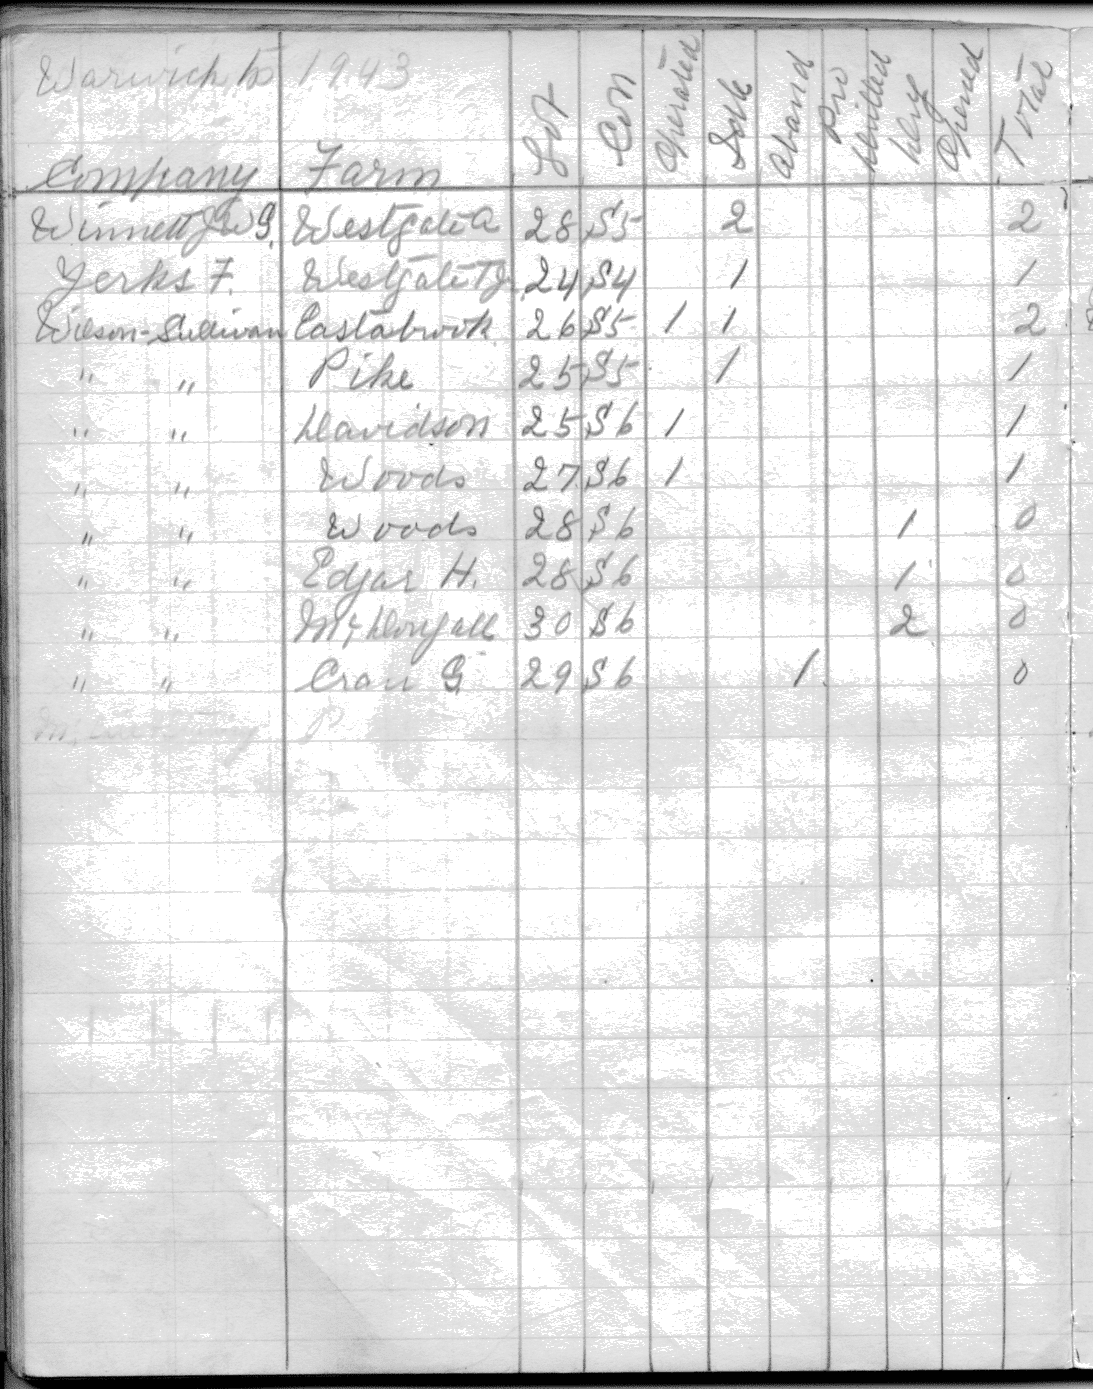 Warwick tp 1943
Company Farm Lot Con Operated Sold Aband Pro Drilled Dry Opened Total
Winnett J W G. Westgate A 28 S5 2 2
Yerks F. Westgate TJ 24 S4 1 1
Wilson-Sullivan Eastabrook 26 S5 1 1 2
" " Pike 25 S5 1 1
" " Davidson 25 S6 1 1
" " Woods 27 S6 1 1
" " Woods 28 S6 1 0
" " Edgar H. 28 S6 1 0
" " McDougall 30 S6 2 0
" " G 29 S6 1 0
P